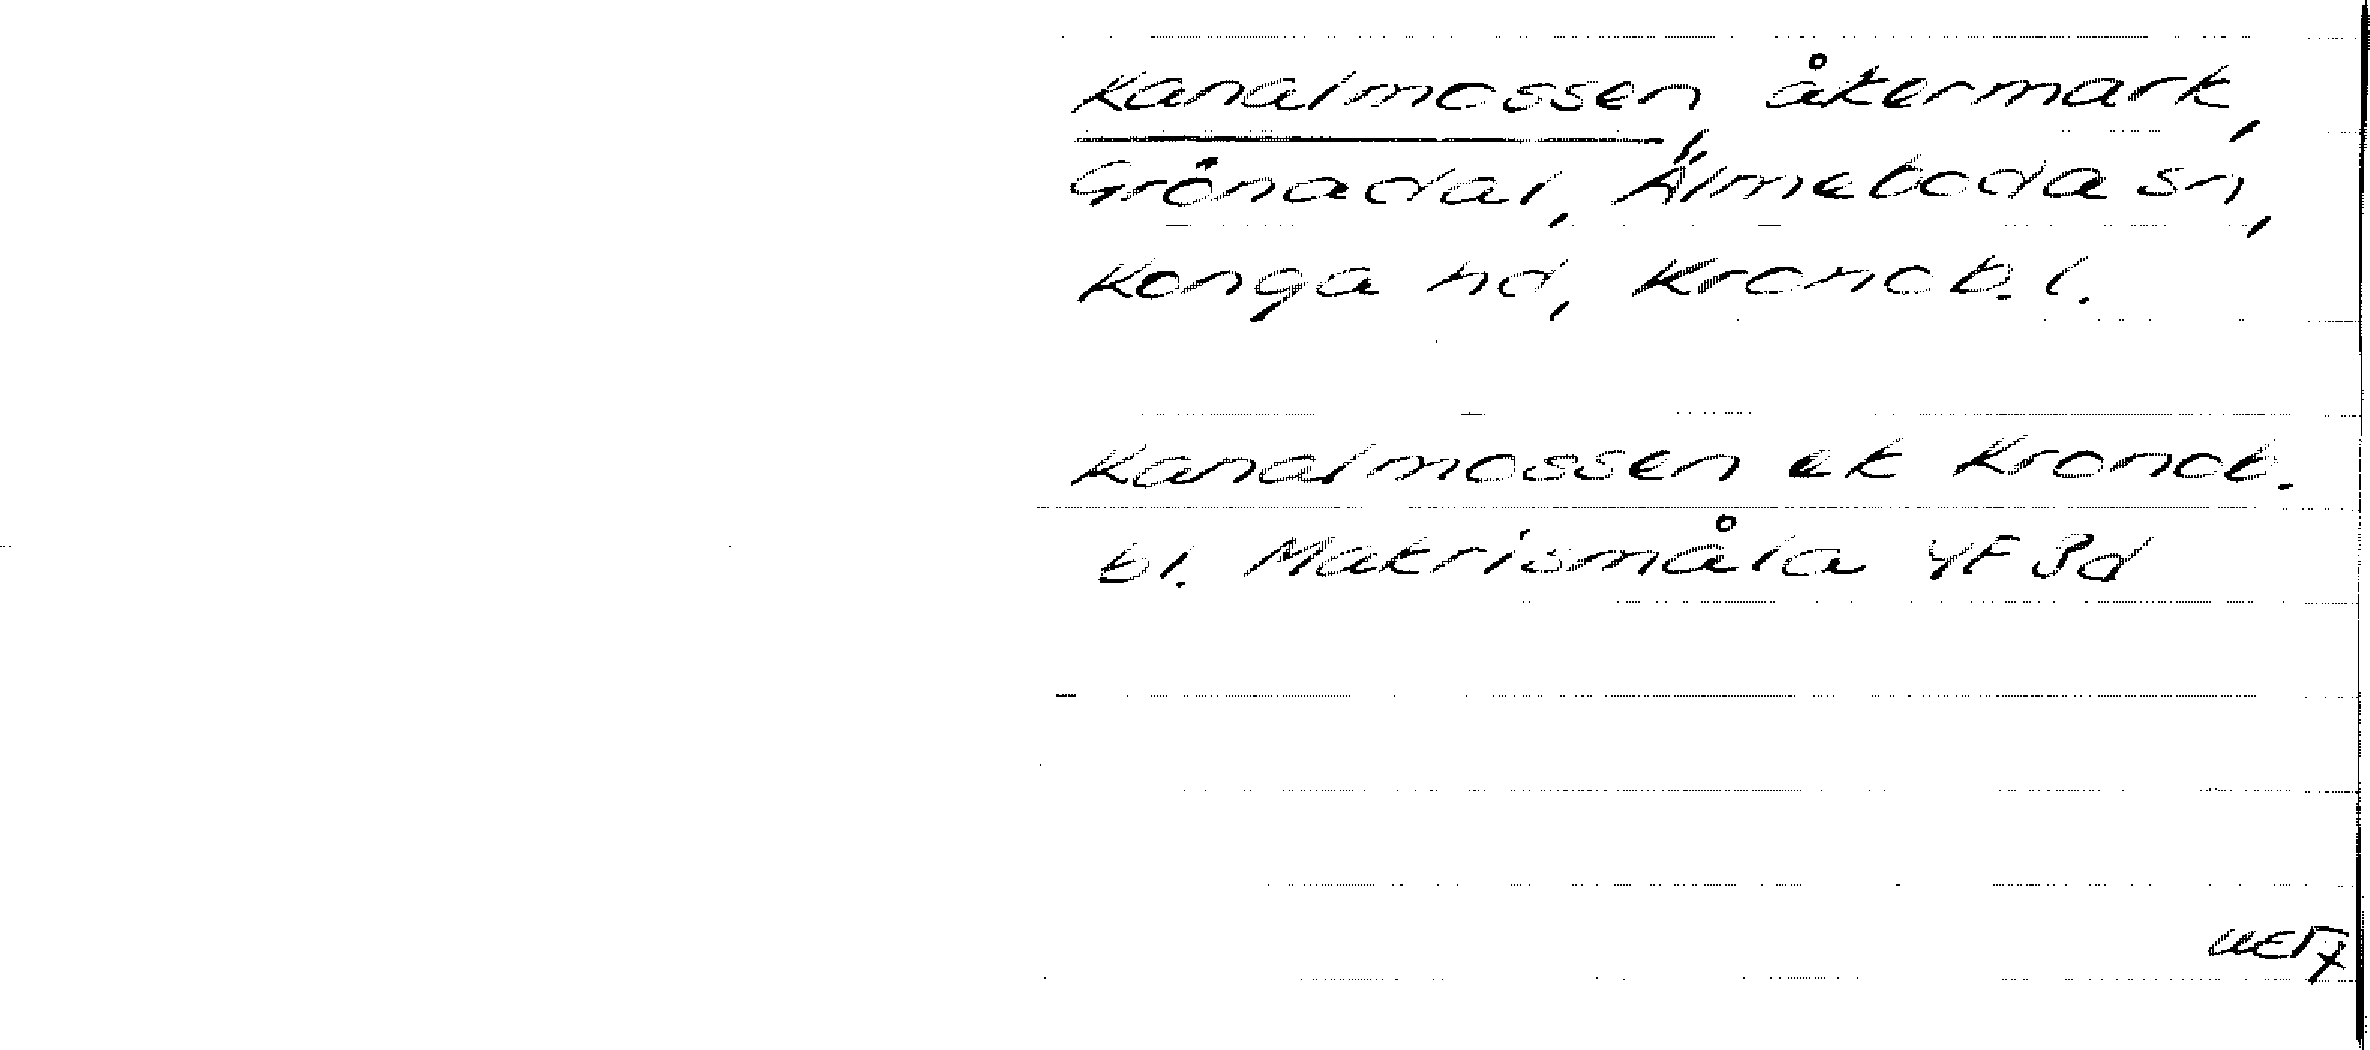 Kanalmossen, åkermark,
Grönadal, Älmeboda sn,
Konga hd, Kronob. l.
Kanalmossen ek Kronob.
bl. Matrismåla 4F 3d